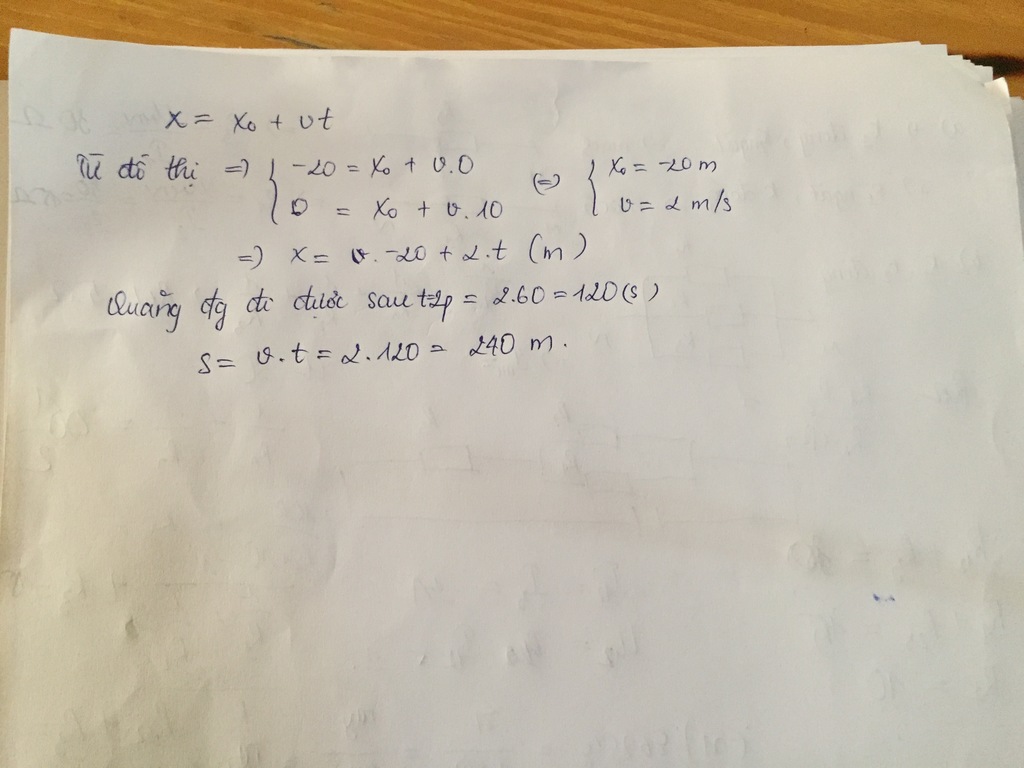 x = x₀ + vt
Từ đồ thị => { -20 = x₀ + v.0 (=) { x₀ = -20 m
0 = x₀ + v.10 v = 2 m/s
=) x = -20 + 2.t (m)
Quãng đg đi được sau t=2p = 2.60 = 120 (s)
S = v.t = 2.120 = 240 m.